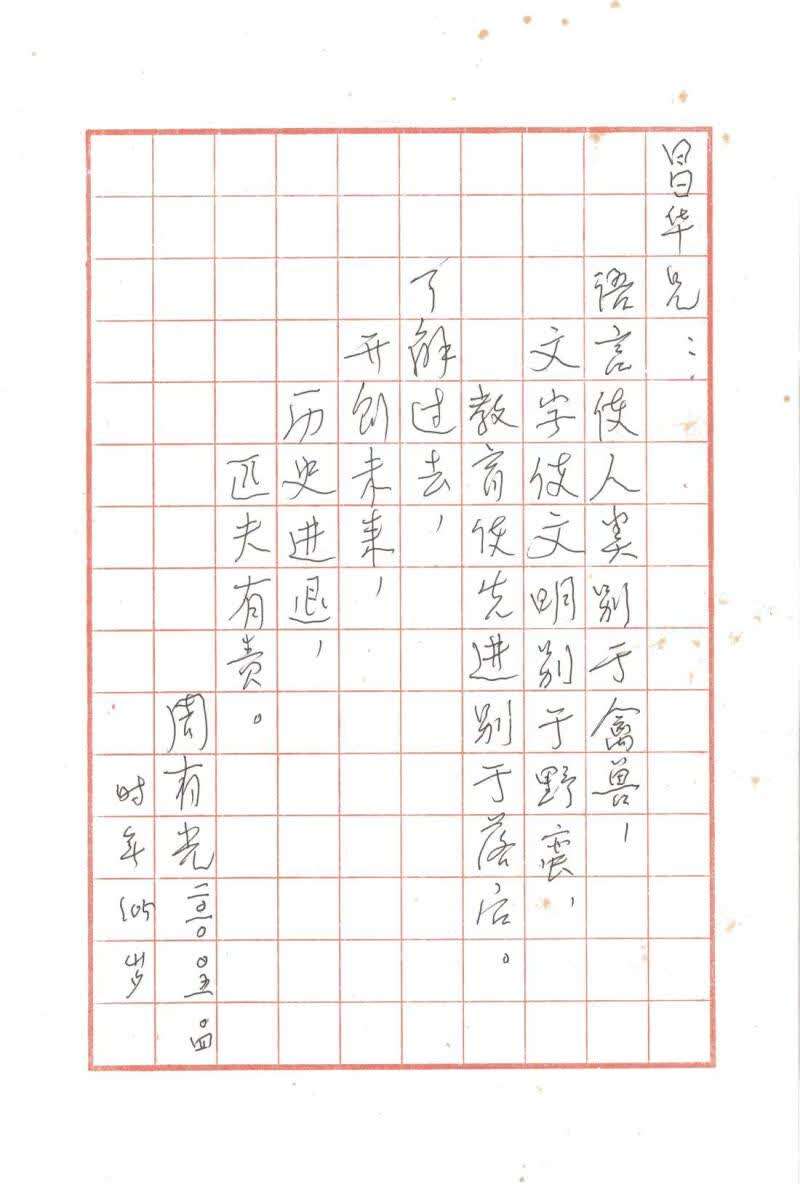 昌华兄：
语言使人类别于禽兽，
文字使文明别于野蛮，
教育使先进别于落后。
了解过去，
开创未来，
历史进退，
匹夫有责。
周有光 二〇一〇.〇五.〇四
时年105岁